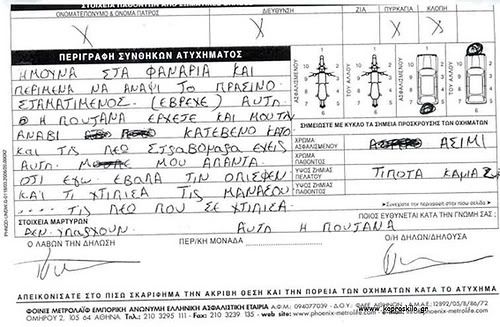 ΣΤΟΙΧΕΙΑ ΠΑΘΟΝΤΩΝ
ΟΝΟΜΑΤΕΠΩΝΥΜΟ & ΟΝΟΜΑ ΠΑΤΡΟΣ ΔΙΕΥΘΥΝΣΗ ΖΙΑ ΠΥΡΚΑΓΙΑ ΚΛΟΠΗ
X X X
ΠΕΡΙΓΡΑΦΗ ΣΥΝΘΗΚΩΝ ΑΤΥΧΗΜΑΤΟΣ
ΗΜΟΥΝΑ ΣΤΑ ΦΑΝΑΡΙΑ ΚΑΙ
ΠΕΡΙΜΕΝΑ ΝΑ ΑΝΑΨΗ ΤΟ ΠΡΑΣΙΝΟ
ΣΤΑΜΑΤΙΜΕΝΟΣ (ΕΒΡΕΧΕ) ΑΥΤΟ
Η ΠΟΥΤΑΝΑ ΕΡΧΕΤΕ ΚΑΙ ΜΟΥ ΤΗΝ
ΑΝΑΒΙ ΚΑΤΕΒΕΝΟ ΚΑΤΟ
ΚΑΙ ΤΙΣ ΛΕΟ ΣΤΡΑΒΟΜΑΡΑ ΕΧΕΙΣ
ΑΥΤΟ ΜΟΥ ΑΠΑΝΤΑ
ΟΤΙ ΕΓΩ ΕΒΑΛΑ ΤΙΝ ΟΠΙΣΘΕΝ
ΚΑΙ ΤΙ ΧΤΙΠΙΣΑ ΤΙΣ
.... ΤΙΣ ΛΕΟ ΠΟΥ ΣΕ ΧΤΙΠΙΣΑ
ΑΣΦΑΛΙΣΜΕΝΟΥ ΤΟΥ ΑΛΛΟΥ ΑΣΦΑΛΙΣΜΕΝΟΥ ΤΟΥ ΑΛΛΟΥ
ΣΗΜΕΙΩΣΤΕ ΜΕ ΚΥΚΛΟ ΤΑ ΣΗΜΕΙΑ ΠΡΟΣΚΡΟΥΣΗΣ ΤΩΝ ΟΧΗΜΑΤΩΝ
ΧΡΩΜΑ ΑΣΦΑΛΙΣΜΕΝΟΥ
ΧΡΩΜΑ ΑΛΛΟΥ
ΑΣΙΜΙ
ΥΨΟΣ ΖΗΜΙΑΣ ΠΕΛΑΤΟΥ
ΥΨΟΣ ΖΗΜΙΑΣ ΑΛΛΟΥ
ΤΙΠΟΤΑ
ΣΤΟΙΧΕΙΑ ΜΑΡΤΥΡΩΝ
ΔΕΝ ΥΠΑΡΧΟΥΝ
ΠΟΙΟΣ ΕΥΘΥΝΕΤΑΙ ΚΑΤΑ ΤΗ ΓΝΩΜΗ ΣΑΣ:
ΑΥΤΟ Η ΠΟΥΤΑΝΑ
Ο ΛΑΒΩΝ ΤΗΝ ΔΗΛΩΣΗ ΠΕΡ/ΚΗ ΜΟΝΑΔΑ Ο/Η ΔΗΛΩΝ/ΟΥΣΑ
ΑΠΕΙΚΟΝΙΣΑΤΕ ΣΤΟ ΠΙΣΩ ΣΚΑΡΙΦΗΜΑ ΤΗΝ ΑΚΡΙΒΗ ΘΕΣΗ ΚΑΙ ΤΗΝ ΠΟΡΕΙΑ ΤΩΝ ΟΧΗΜΑΤΩΝ ΚΑΤΑ ΤΟ ΑΤΥΧΗΜΑ
ΦΟΙΝΙΞ ΜΕΤΡΟΛΑΪΦ ΕΜΠΟΡΙΚΗ ΑΝΩΝΥΜΗ ΕΛΛΗΝΙΚΗ ΑΣΦΑΛΙΣΤΙΚΗ ΕΤΑΙΡΙΑ Α.Φ.Μ.: 094077039 - Δ.Ο.Υ.: ΦΑΕ ΑΘΗΝΩΝ - Α.Μ.: 12892/05/Β/86/72
ΟΜΗΡΟΥ 2, 105 64 ΑΘΗΝΑ. Τηλ.: 210 3295 111 - Fax: 210 3239 135 - web site: www.phoenix-metrolife.com
www.kapaskilo.gr